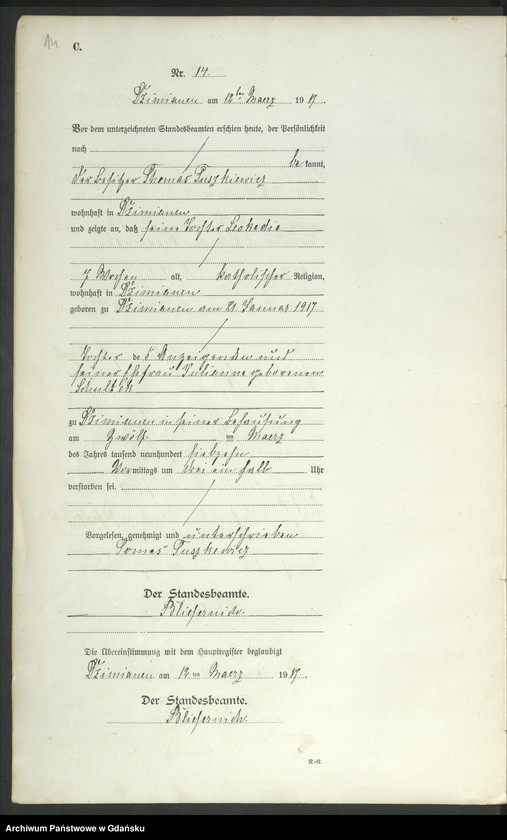 14
C.
Nr. 14.
Dzimianen am 12ten Maerz 1917.
Vor dem unterzeichneten Standesbeamten erschien heute, der Persönlichkeit
nach
bekannt,
der Besitzer Thomas Tuszkiewicz
wohnhaft in Dzimianen
und zeigte an, daß seine Tochter Leokadia
7 Wochen alt, katholischer Religion,
wohnhaft in Dzimianen
geboren zu Dzimianen am 21 Januar 1917
Tochter des Anzeigenden und
seiner Ehefrau Julianne geborenen
zu Dzimianen in seiner Behausung
am Zwölf ten Maerz
des Jahres tausend neunhundert siebzehn
Vormittags um drei ein halb Uhr
verstorben sei.
Vorgelesen, genehmigt und unterschrieben
Tomas Tuszkewicz
Der Standesbeamte.
Bliefernich.
Die Übereinstimmung mit dem Hauptregister beglaubigt
Dzimianen am 12 ten Maerz 1917.
Der Standesbeamte.
Bliefernich.
R.-R.
Archiwum Państwowe w Gdańsku